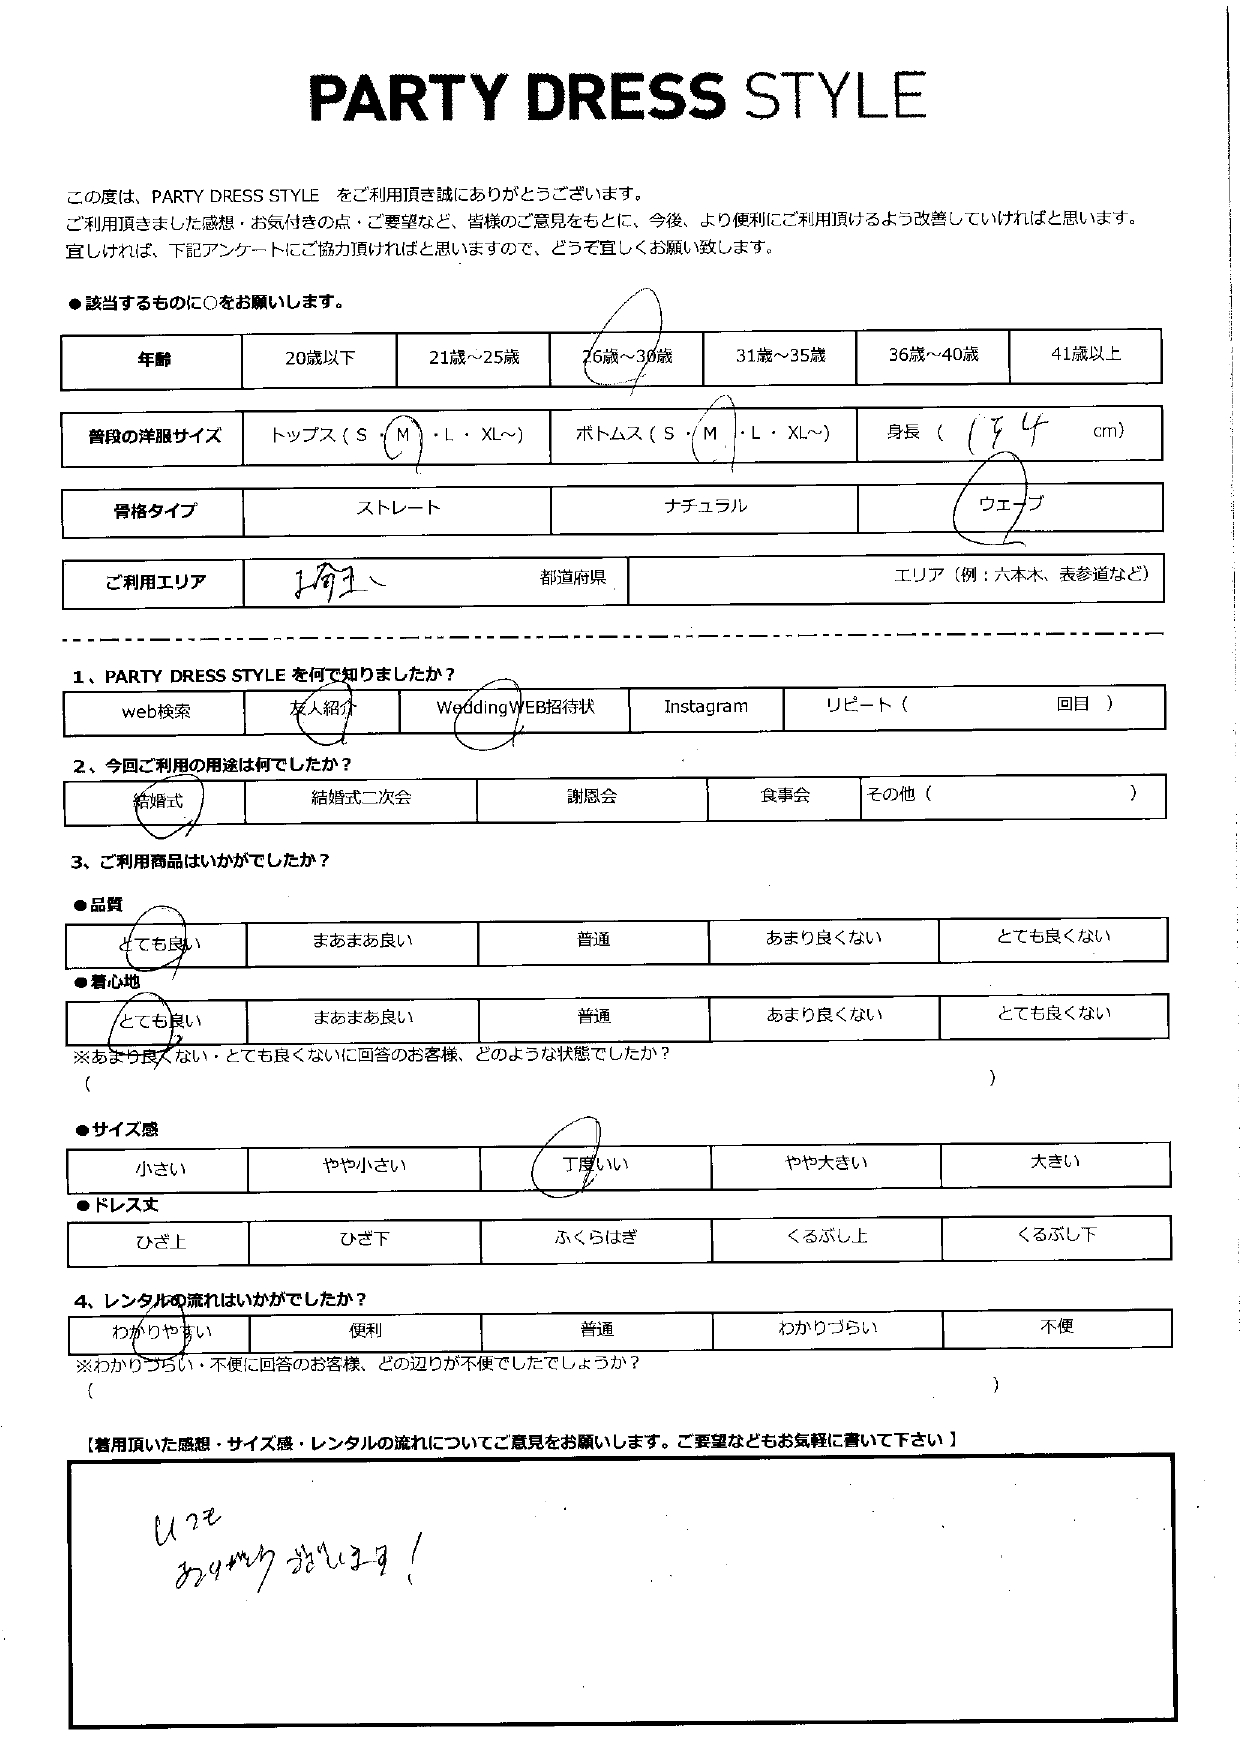 PARTY DRESS STYLE
この度は、PARTY DRESS STYLE をご利用頂き誠にありがとうございます。
ご利用頂きました感想・お気付きの点・ご要望など、皆様のご意見をもとに、今後、より便利にご利用頂けるよう改善していければと思います。
宜しければ、下記アンケートにご協力頂ければと思いますので、どうぞ宜しくお願い致します。
●該当するものに○をお願いします。
年齢 20歳以下 21歳～25歳 26歳～30歳 31歳～35歳 36歳～40歳 41歳以上
普段の洋服サイズ トップス ( S ・ M ・ L ・ XL～) ボトムス ( S ・ M ・ L ・ XL～) 身長 ( 154 cm)
骨格タイプ ストレート ナチュラル ウェーブ
ご利用エリア 埼玉 都道府県 エリア（例：六本木、表参道など）
1、PARTY DRESS STYLE を何で知りましたか？
web検索 友人紹介 WeddingWEB招待状 Instagram リピート ( 回目 )
2、今回ご利用の用途は何でしたか？
結婚式 結婚式二次会 謝恩会 食事会 その他 ( )
3、ご利用商品はいかがでしたか？
●品質
とても良い まあまあ良い 普通 あまり良くない とても良くない
●着心地
とても良い まあまあ良い 普通 あまり良くない とても良くない
※あまり良くない・とても良くないに回答のお客様、どのような状態でしたか？
( )
●サイズ感
小さい やや小さい 丁度いい やや大きい 大きい
●ドレス丈
ひざ上 ひざ下 ふくらはぎ くるぶし上 くるぶし下
4、レンタルの流れはいかがでしたか？
わかりやすい 便利 普通 わかりづらい 不便
※わかりづらい・不便に回答のお客様、どの辺りが不便でしたでしょうか？
( )
【着用頂いた感想・サイズ感・レンタルの流れについてご意見をお願いします。ご要望などもお気軽に書いて下さい 】
いつも
ありがとうございます！